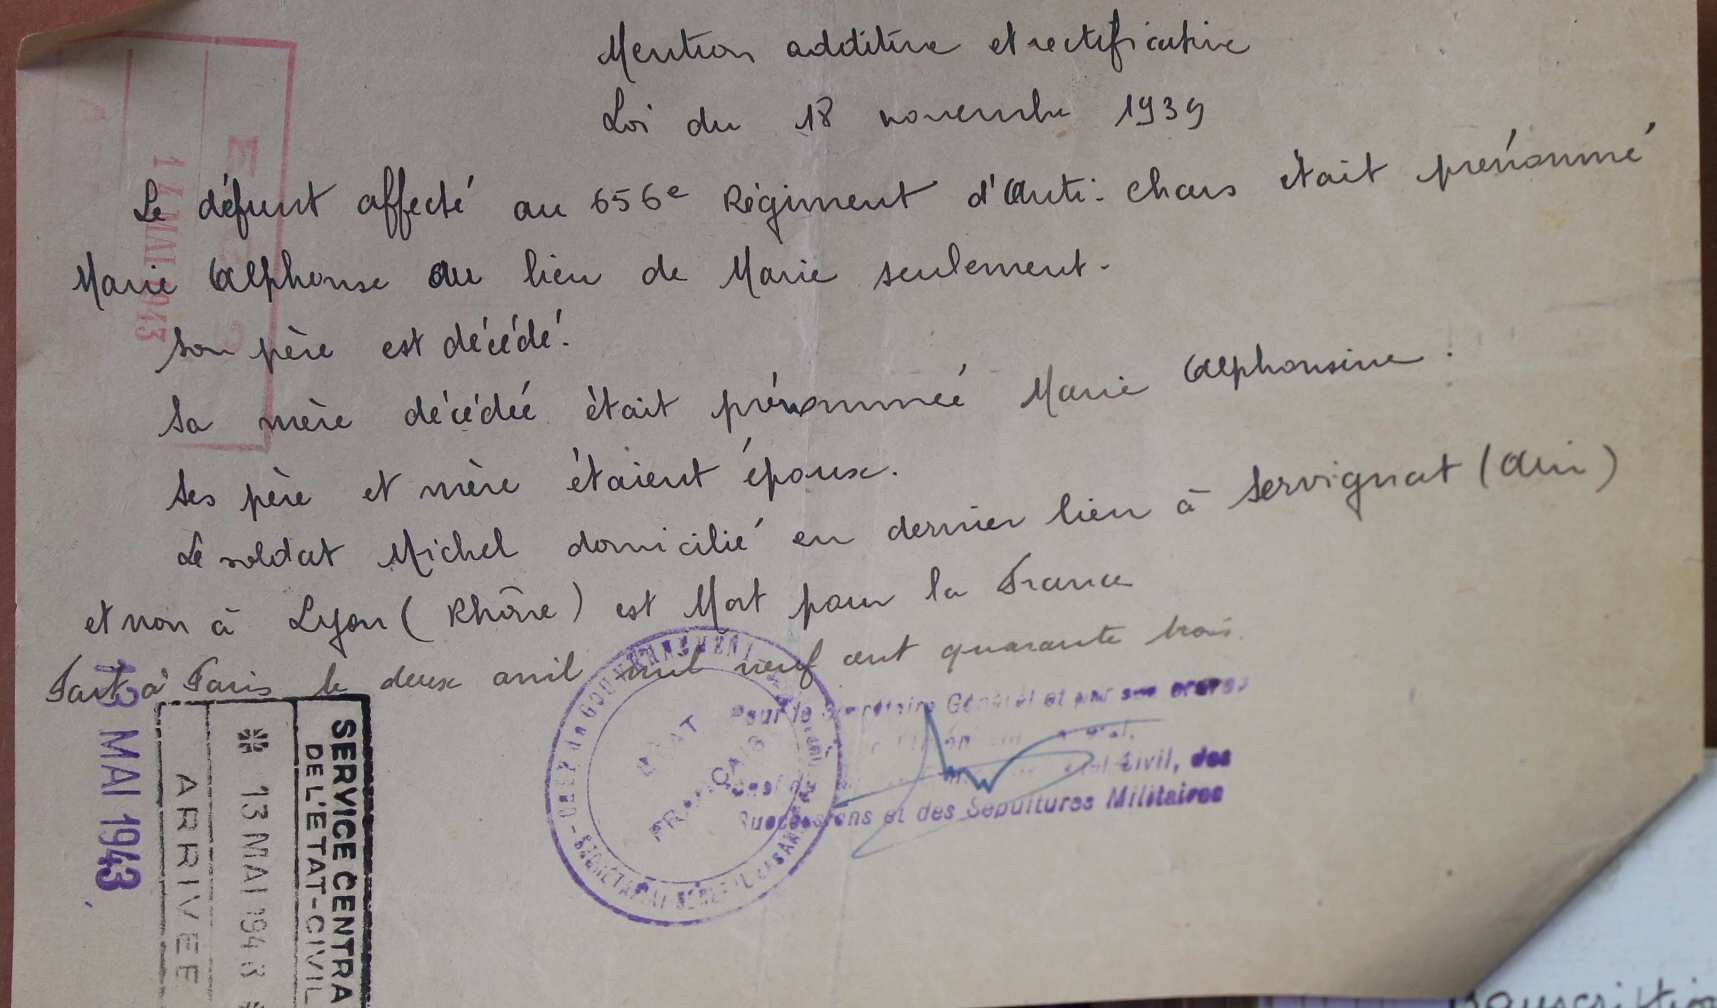 Mention additive et rectificative
Loi du 18 novembre 1939
Le défunt affecté au 656e Régiment d'Anti-Chars était prénommé
Marie Alphonse au lieu de Marie seulement.
Son père est décédé.
Sa mère décédée était prénommée Marie Alphonsine.
Ses père et mère étaient époux.
Le soldat Michel domicilié en dernier lieu à Servignat (Ain)
et non à Lyon (Rhône) est Mort pour la France
Fait à Paris le deux avril mil neuf cent quarante trois.
Pour le Secrétaire Général et par son ordre
Civil, des
Successions et des Sépultures Militaires
ETAT
FRANÇAIS
13 MAI 1943
SERVICE CENTRA
DE L'ETAT-CIVIL
* 13 MAI 1943 *
ARRIVEE
MAI 1943